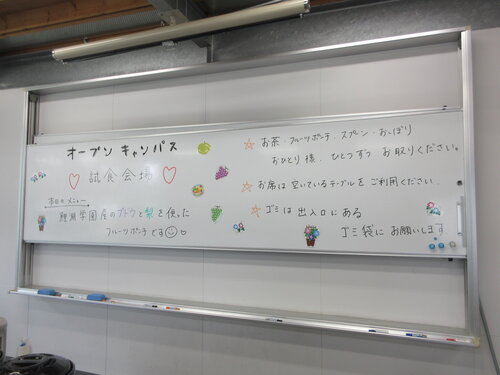 オープン キャンパス
試食会場
本日のメニュー
鯉淵学園産のブドウと梨を使った
フルーツポンチです
☆ お茶・フルーツポンチ・スプーン・おしぼり
おひとり様、ひとつずつ お取りください。
☆ お席は空いているテーブルをご利用ください。
☆ ゴミは出入口にある
ゴミ袋にお願いします